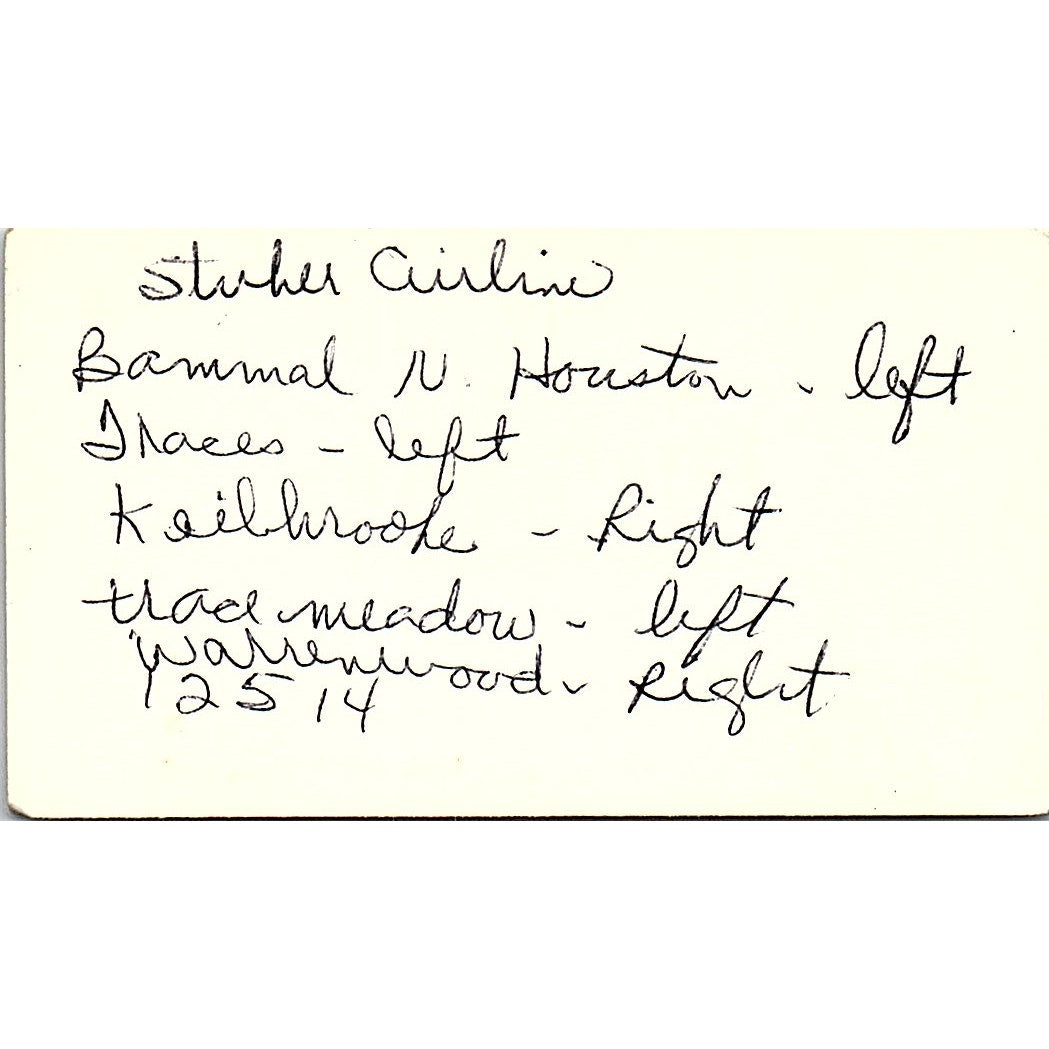 Stuber Airline
Bammal N. Houston - left
Traces - left
Keilbrooke - Right
trace meadow - left
Warrenwood - Right
12514